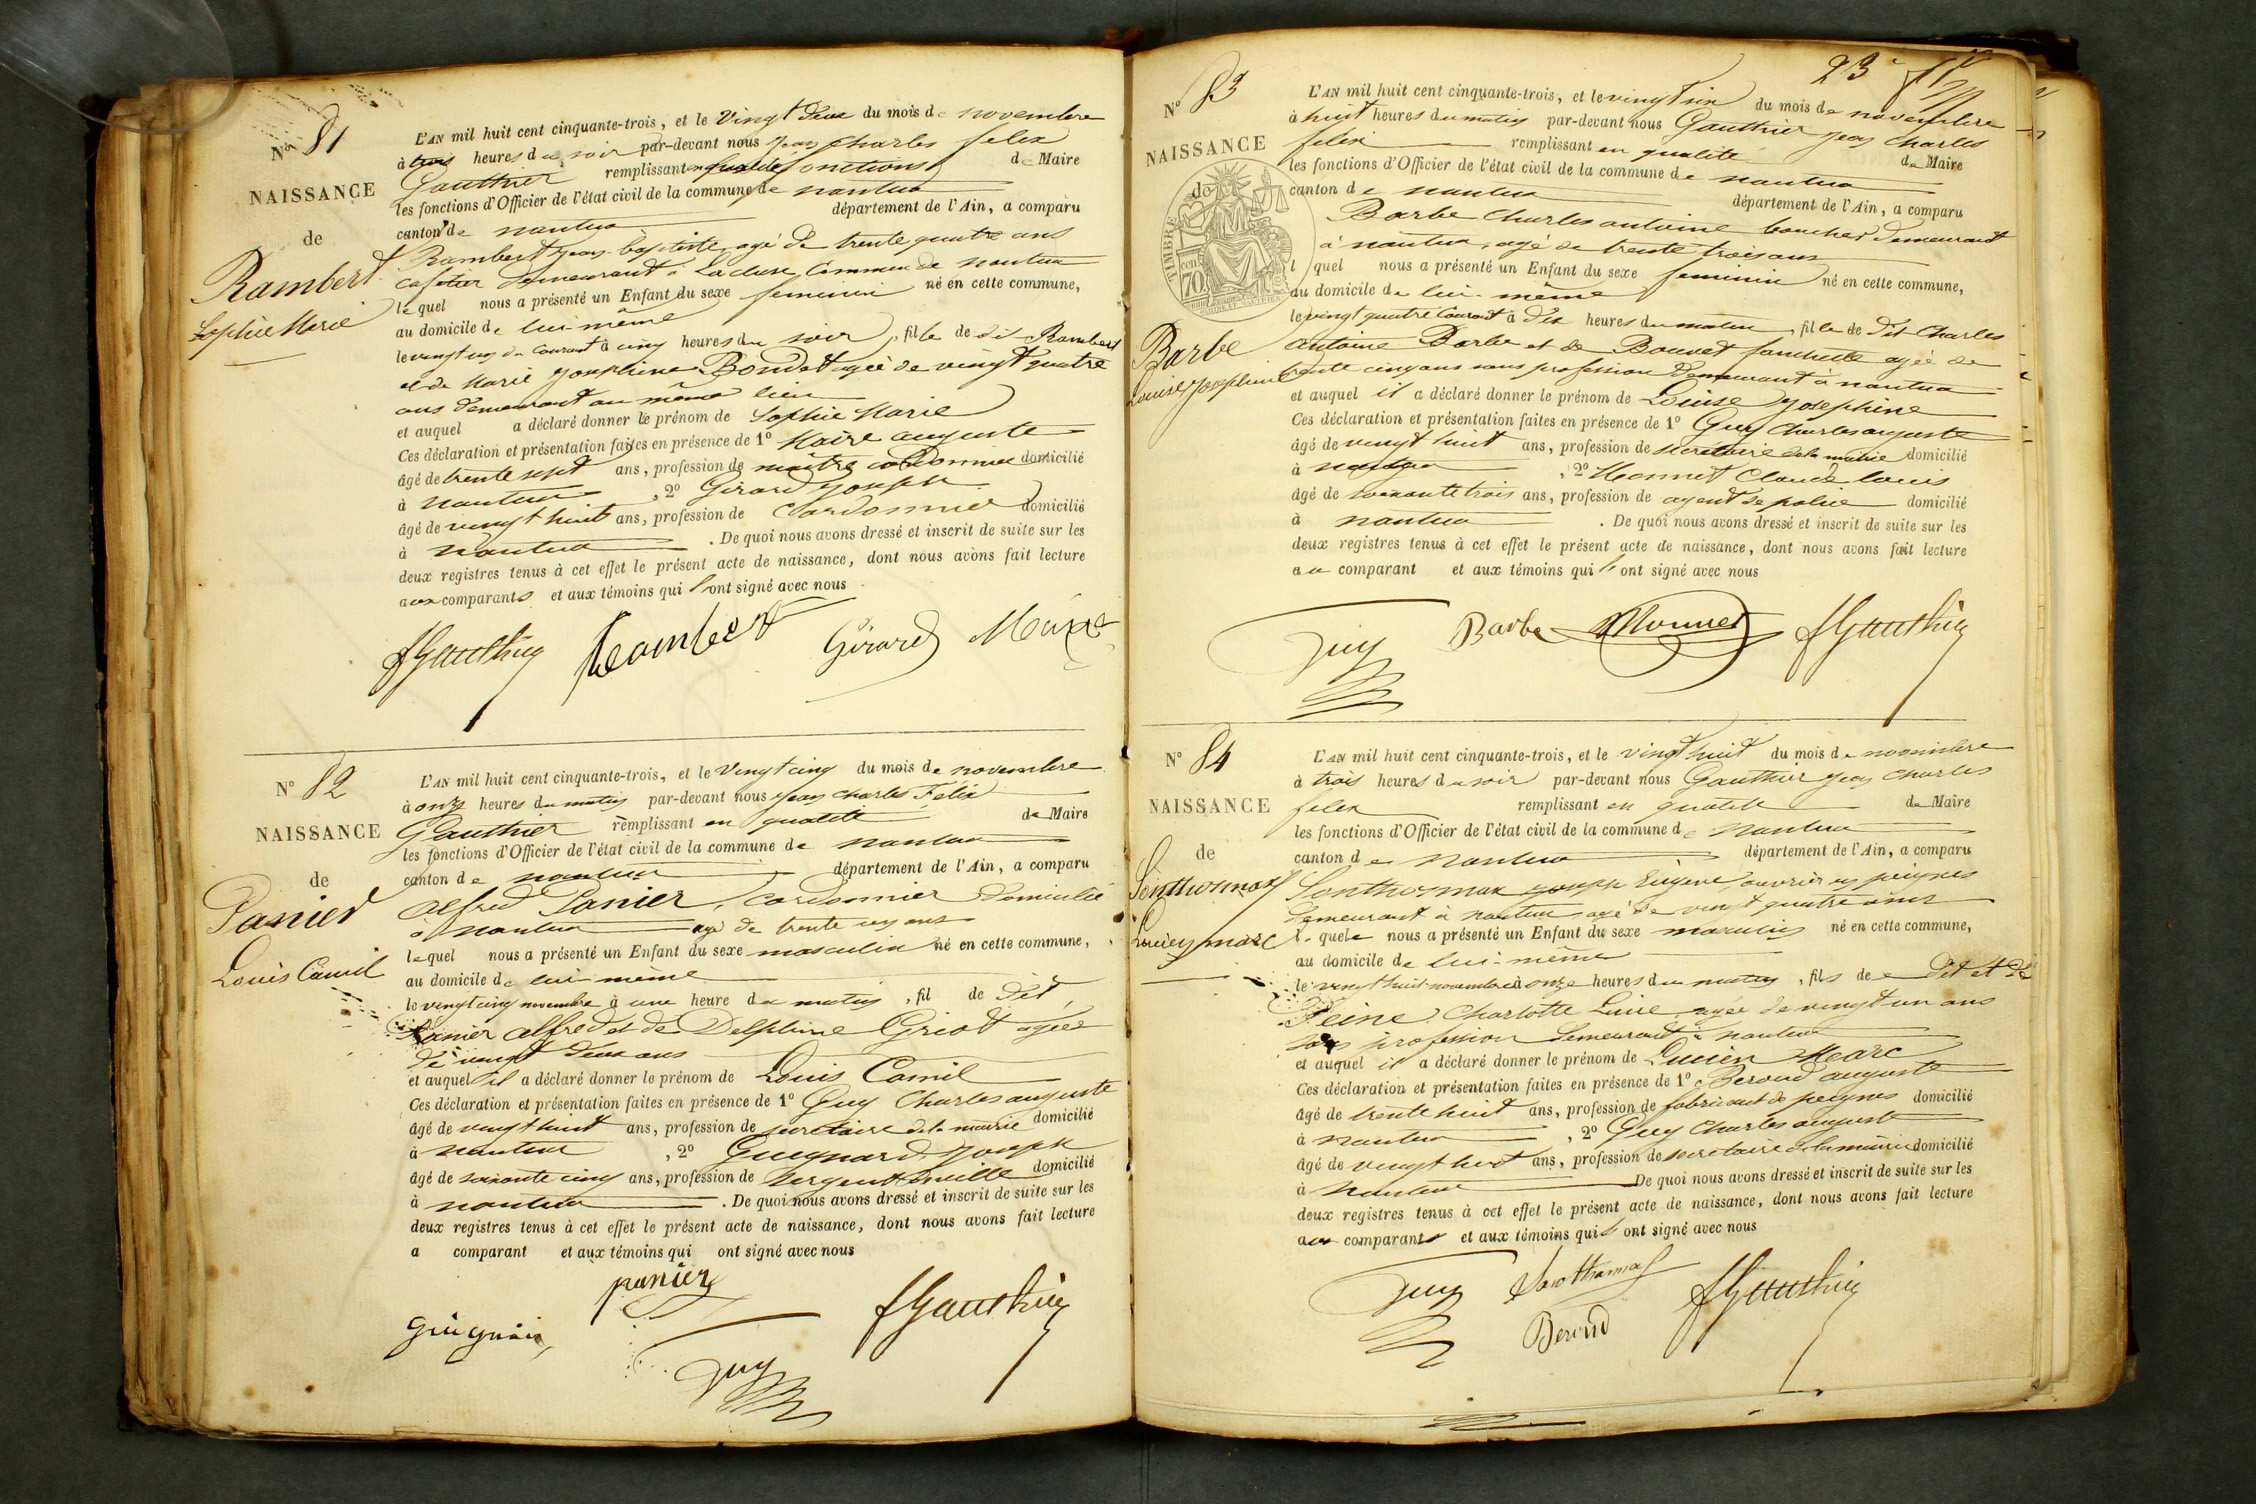 Nº 81
NAISSANCE
de
Rambert
Sophie Marie
L'AN mil huit cent cinquante-trois, et le Vingt deux du mois de novembre
à trois heures du soir par-devant nous jean charles felix
Gauthier remplissant en qualité fonctions de Maire
les fonctions d'Officier de l'état civil de la commune de nantua
canton de nantua département de l'Ain, a comparu
Rambert jean-baptiste, agé de trente quatre ans
cafetier demeurant à Lacluse, Commune de nantua
lequel nous a présenté un Enfant du sexe feminin né en cette commune,
au domicile de lui-même
le vingt un du courant à cinq heures du soir, fille de dit Rambert
et de Marie josephine Bondet agée de vingt quatre
ans demeurant au même lieu
et auquel a déclaré donner le prénom de Sophie Marie
Ces déclaration et présentation faites en présence de 1º Maire auguste
âgé de trente sept ans, profession de maître cordonnier domicilié
à nantua, 2º Girard joseph
âgé de vingt huit ans, profession de Cordonnier domicilié
à nantua. De quoi nous avons dressé et inscrit de suite sur les
deux registres tenus à cet effet le présent acte de naissance, dont nous avons fait lecture
aux comparants et aux témoins qui l'ont signé avec nous
fGauthier Rambert Girard Maire
Nº 82
NAISSANCE
de
Panier
Louis Camil
L'AN mil huit cent cinquante-trois, et le Vingt cinq du mois de novembre
à onze heures du matin par-devant nous jean charles Félix
Gauthier remplissant en qualité de Maire
les fonctions d'Officier de l'état civil de la commune de nantua
canton de nantua département de l'Ain, a comparu
Alfred Panier, Cordonnier domicilié
à nantua agé de trente un ans
lequel nous a présenté un Enfant du sexe masculin né en cette commune,
au domicile de lui-même
le vingt cinq novembre à une heure du matin, fil de dit
Panier alfred et de Delphine Griot agée
de vingt deux ans
et auquel il a déclaré donner le prénom de Louis Camil
Ces déclaration et présentation faites en présence de 1º Guy Charles auguste
âgé de vingt huit ans, profession de secretaire de la mairie domicilié
à nantua, 2º Guignard joseph
âgé de soixante cinq ans, profession de sergent de ville domicilié
à nantua. De quoi nous avons dressé et inscrit de suite sur les
deux registres tenus à cet effet le présent acte de naissance, dont nous avons fait lecture
a comparant et aux témoins qui ont signé avec nous
panier
guignar fGauthier
Guy
23
Nº 83
NAISSANCE
de
TIMBRE
70
Barbe
Louise josephine
L'AN mil huit cent cinquante-trois, et le vingt six du mois de novembre
à huit heures du matin par-devant nous Gauthier jean charles
felix remplissant en qualité de Maire
les fonctions d'Officier de l'état civil de la commune de nantua
canton de nantua département de l'Ain, a comparu
Barbe Charles antoine boucher demeurant
à nantua, agé de trente trois ans
lequel nous a présenté un Enfant du sexe feminin né en cette commune,
au domicile de lui-même
le vingt quatre courant à dix heures du matin, fille de dit Charles
antoine Barbe et de Bouvet fanchette agée de
trente cinq ans sans profession demeurant à nantua
et auquel il a déclaré donner le prénom de Louise Josephine
Ces déclaration et présentation faites en présence de 1º Guy Charles auguste
âgé de vingt huit ans, profession de secretaire de la mairie domicilié
à nantua, 2º Monnet Claude louis
âgé de soixante trois ans, profession de agent de police domicilié
à nantua. De quoi nous avons dressé et inscrit de suite sur les
deux registres tenus à cet effet le présent acte de naissance, dont nous avons fait lecture
au comparant et aux témoins qui l'ont signé avec nous
Guy Barbe Monnet fGauthier
Nº 84
NAISSANCE
de
Sonthonnax
Lucien marc
L'AN mil huit cent cinquante-trois, et le vingt huit du mois de novembre
à trois heures du soir par-devant nous Gauthier jean charles
felix remplissant en qualité de Maire
les fonctions d'Officier de l'état civil de la commune de nantua
canton de nantua département de l'Ain, a comparu
Sonthonnax joseph Eugène, ouvrier en peignes
demeurant à nantua agé de vingt quatre ans
lequel nous a présenté un Enfant du sexe masculin né en cette commune,
au domicile de lui-même
le vingt huit novembre à onze heures du matin, fils de dit et de
Peine Charlotte Luise agée de vingt un ans
sans profession demeurant à nantua
et auquel il a déclaré donner le prénom de Lucien Marc
Ces déclaration et présentation faites en présence de 1º Beroud auguste
âgé de trente huit ans, profession de fabricant de peignes domicilié
à nantua, 2º Guy Charles august
âgé de vingt huit ans, profession de secretaire de la mairie domicilié
à nantua De quoi nous avons dressé et inscrit de suite sur les
deux registres tenus à cet effet le présent acte de naissance, dont nous avons fait lecture
aux comparants et aux témoins qui l'ont signé avec nous
Guy Sonthonnax fGauthier
Beroud